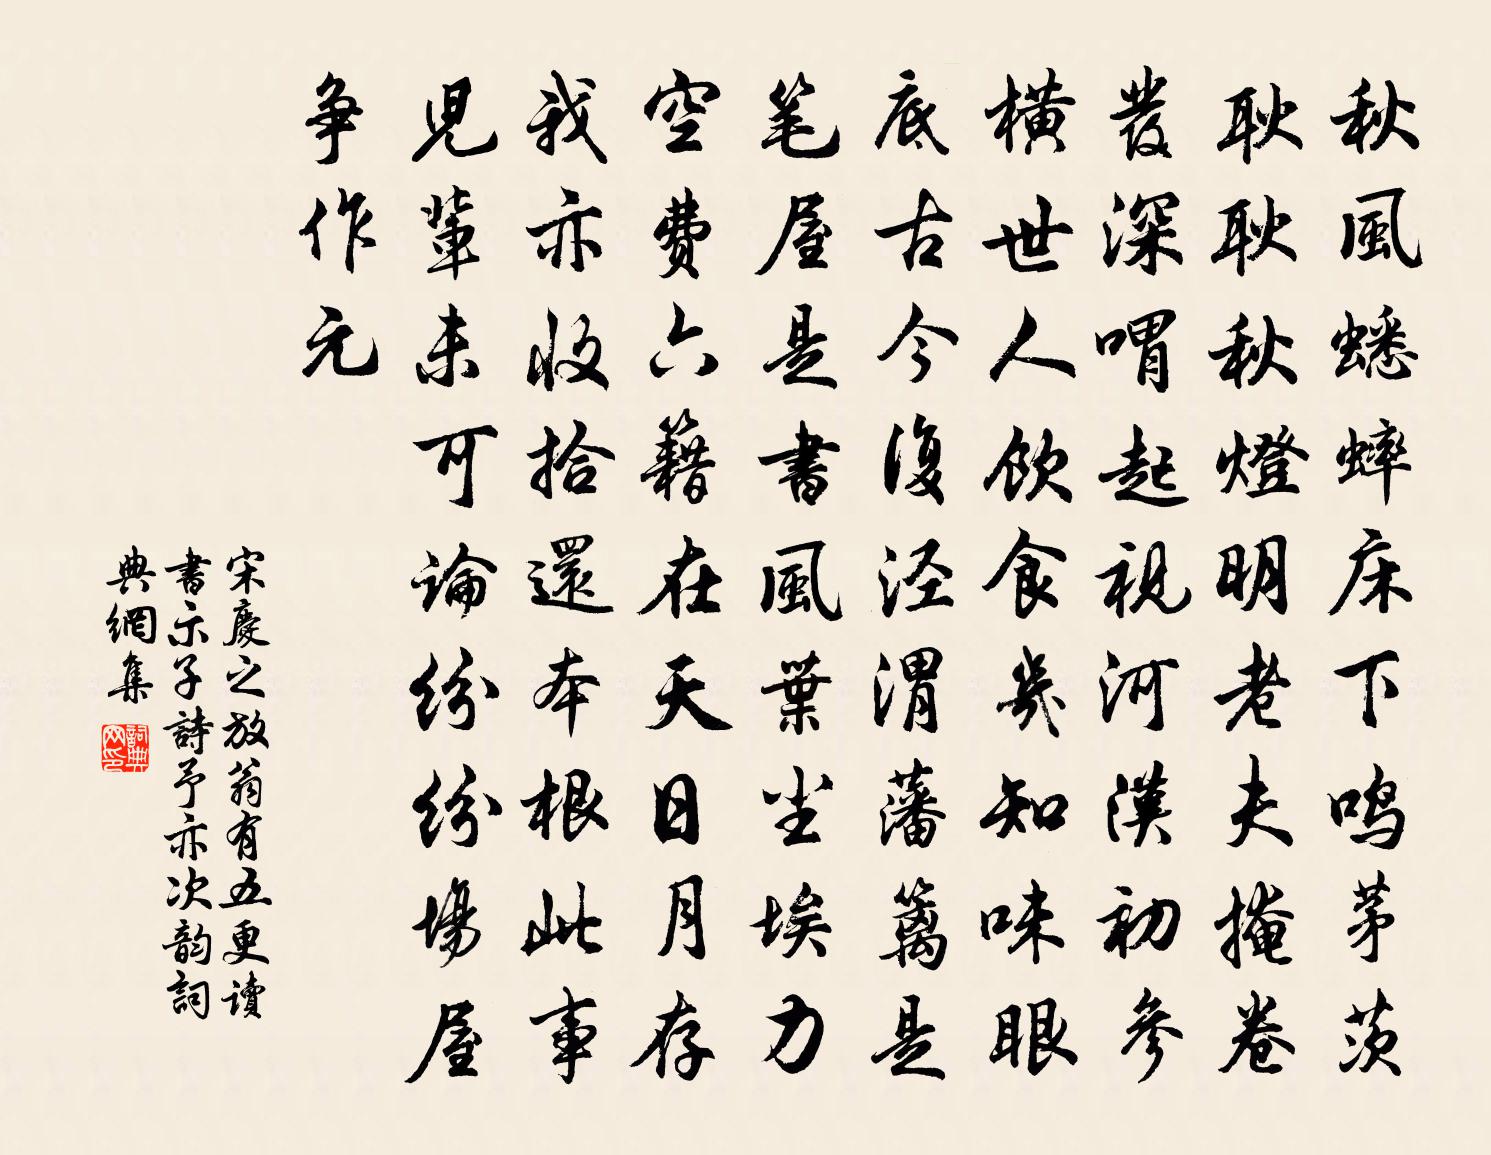 秋風蟋蟀床下鳴茅茨
耿耿秋燈明老夫掩卷
發深喟起視河漢初參
橫世人飲食幾知味眼
底古今復涇渭藩籬是
笔屋是書風葉尘埃力
空費六籍在天日月存
我亦收拾還本根此事
児輩未可論紛紛場屋
爭作元
宋慶之放翁有五更讀
書示子詩予亦次韵詞
典網集
詞典网印